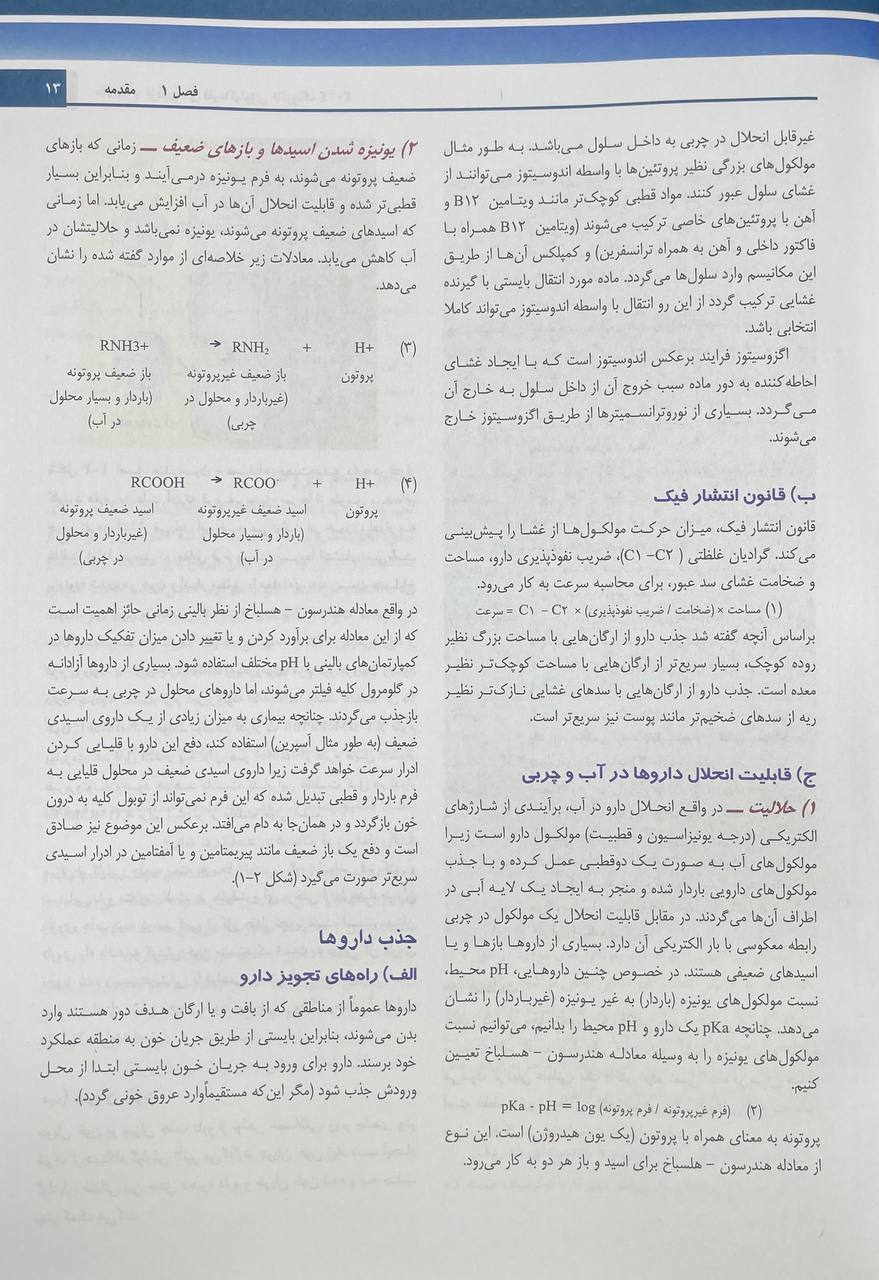 فصل ۱ مقدمه ۱۳
غیرقابل انحلال در چربی به داخل سلول می‌باشد. به طور مثال
مولکول‌های بزرگی نظیر پروتئین‌ها با واسطه اندوسیتوز می‌توانند از
غشای سلول عبور کنند. مواد قطبی کوچک‌تر مانند ویتامین B۱۲ و
آهن با پروتئین‌های خاصی ترکیب می‌شوند (ویتامین B۱۲ همراه با
فاکتور داخلی و آهن به همراه ترانسفرین) و کمپلکس آن‌ها از طریق
این مکانیسم وارد سلول‌ها می‌گردد. ماده مورد انتقال بایستی با گیرنده
غشایی ترکیب گردد از این رو انتقال با واسطه اندوسیتوز می‌تواند کاملا
انتخابی باشد.
اگزوسیتوز فرایند برعکس اندوسیتوز است که بـا ایجاد غشای
احاطه‌کننده به دور ماده سبب خروج آن از داخل سلول به خارج آن
می‌گردد. بسیاری از نوروترانسمیترها از طریق اگزوسیتوز خارج
می‌شوند.
ب) قانون انتشار فیک
قانون انتشار فیک، میزان حرکت مولکول‌ها از غشا را پیش‌بینی
می‌کند. گرادیان غلظتی (C۱ –C۲)، ضریب نفوذپذیری دارو، مساحت
و ضخامت غشای سد عبور، برای محاسبه سرعت به کار می‌رود.
(۱) مساحت × (ضخامت / ضریب نفوذپذیری) × C۱ – C۲ = سرعت
براساس آنچه گفته شد جذب دارو از ارگان‌هایی با مساحت بزرگ نظیر
روده کوچک، بسیار سریع‌تر از ارگان‌هایی با مساحت کوچک‌تر نظیر
معده است. جذب دارو از ارگان‌هایی با سدهای غشایی نازک‌تر نظیر
ریه از سدهای ضخیم‌تر مانند پوست نیز سریع‌تر است.
ج) قابلیت انحلال داروها در آب و چربی
۱) حلالیت ــ در واقع انحلال دارو در آب، برآیندی از شارژهای
الکتریکی (درجه یونیزاسیون و قطبیت) مولکول دارو است زیرا
مولکول‌های آب به صورت یک دوقطبی عمل کرده و با جذب
مولکول‌های دارویی باردار شده و منجر به ایجاد یک لایه آبی در
اطراف آن‌ها می‌گردند. در مقابل قابلیت انحلال یک مولکول در چربی
رابطه معکوسی با بار الکتریکی آن دارد. بسیاری از داروها بازها و یا
اسیدهای ضعیفی هستند. در خصوص چنین داروهایی، pH محیط،
نسبت مولکول‌های یونیزه (باردار) به غیر یونیزه (غیرباردار) را نشان
می‌دهد. چنانچه pKa یک دارو و pH محیط را بدانیم، می‌توانیم نسبت
مولکول‌های یونیزه را به وسیله معادله هندرسون – هسلباخ تعیین
کنیم.
(۲) pKa - pH = log (فرم غیرپروتونه / فرم پروتونه)
پروتونه به معنای همراه با پروتون (یک یون هیدروژن) است. این نوع
از معادله هندرسون – هلسباخ برای اسید و باز هر دو به کار می‌رود.
۲) یونیزه شدن اسیدها و بازهای ضعیف ــ زمانی که بازهای
ضعیف پروتونه می‌شوند، به فرم یونیزه درمی‌آیند و بنابراین بسیار
قطبی‌تر شده و قابلیت انحلال آن‌ها در آب افزایش می‌یابد. اما زمانی
که اسیدهای ضعیف پروتونه می‌شوند، یونیزه نمی‌باشد و حلالیتشان در
آب کاهش می‌یابد. معادلات زیر خلاصه‌ای از موارد گفته شده را نشان
می‌دهد.
RNH3+ → RNH₂ + H+ (۳)
پروتون باز ضعیف غیرپروتونه باز ضعیف پروتونه
(غیرباردار و محلول در (باردار و بسیار محلول
چربی) در آب)
RCOOH → RCOO⁻ + H+ (۴)
پروتون اسید ضعیف غیرپروتونه اسید ضعیف پروتونه
(باردار و بسیار محلول (غیرباردار و محلول
در آب) در چربی)
در واقع معادله هندرسون – هسلباخ از نظر بالینی زمانی حائز اهمیت است
که از این معادله برای برآورد کردن و یا تغییر دادن میزان تفکیک داروها در
کمپارتمان‌های بالینی با pH مختلف استفاده شود. بسیاری از داروها آزادانه
در گلومرول کلیه فیلتر می‌شوند، اما داروهای محلول در چربی به سرعت
بازجذب می‌گردند. چنانچه بیماری به میزان زیادی از یک داروی اسیدی
ضعیف (به طور مثال آسپرین) استفاده کند، دفع این دارو با قلیایی کردن
ادرار سرعت خواهد گرفت زیرا داروی اسیدی ضعیف در محلول قلیایی به
فرم باردار و قطبی تبدیل شده که این فرم نمی‌تواند از توبول کلیه به درون
خون بازگردد و در همان‌جا به دام می‌افتد. برعکس این موضوع نیز صادق
است و دفع یک باز ضعیف مانند پیریمتامین و یا آمفتامین در ادرار اسیدی
سریع‌تر صورت می‌گیرد (شکل ۲-۱).
جذب داروها
الف) راه‌های تجویز دارو
داروها عموماً از مناطقی که از بافت و یا ارگان هدف دور هستند وارد
بدن می‌شوند، بنابراین بایستی از طریق جریان خون به منطقه عملکرد
خود برسند. دارو برای ورود به جریان خون بایستی ابتدا از محل
ورودش جذب شود (مگر این‌که مستقیماًوارد عروق خونی گردد).